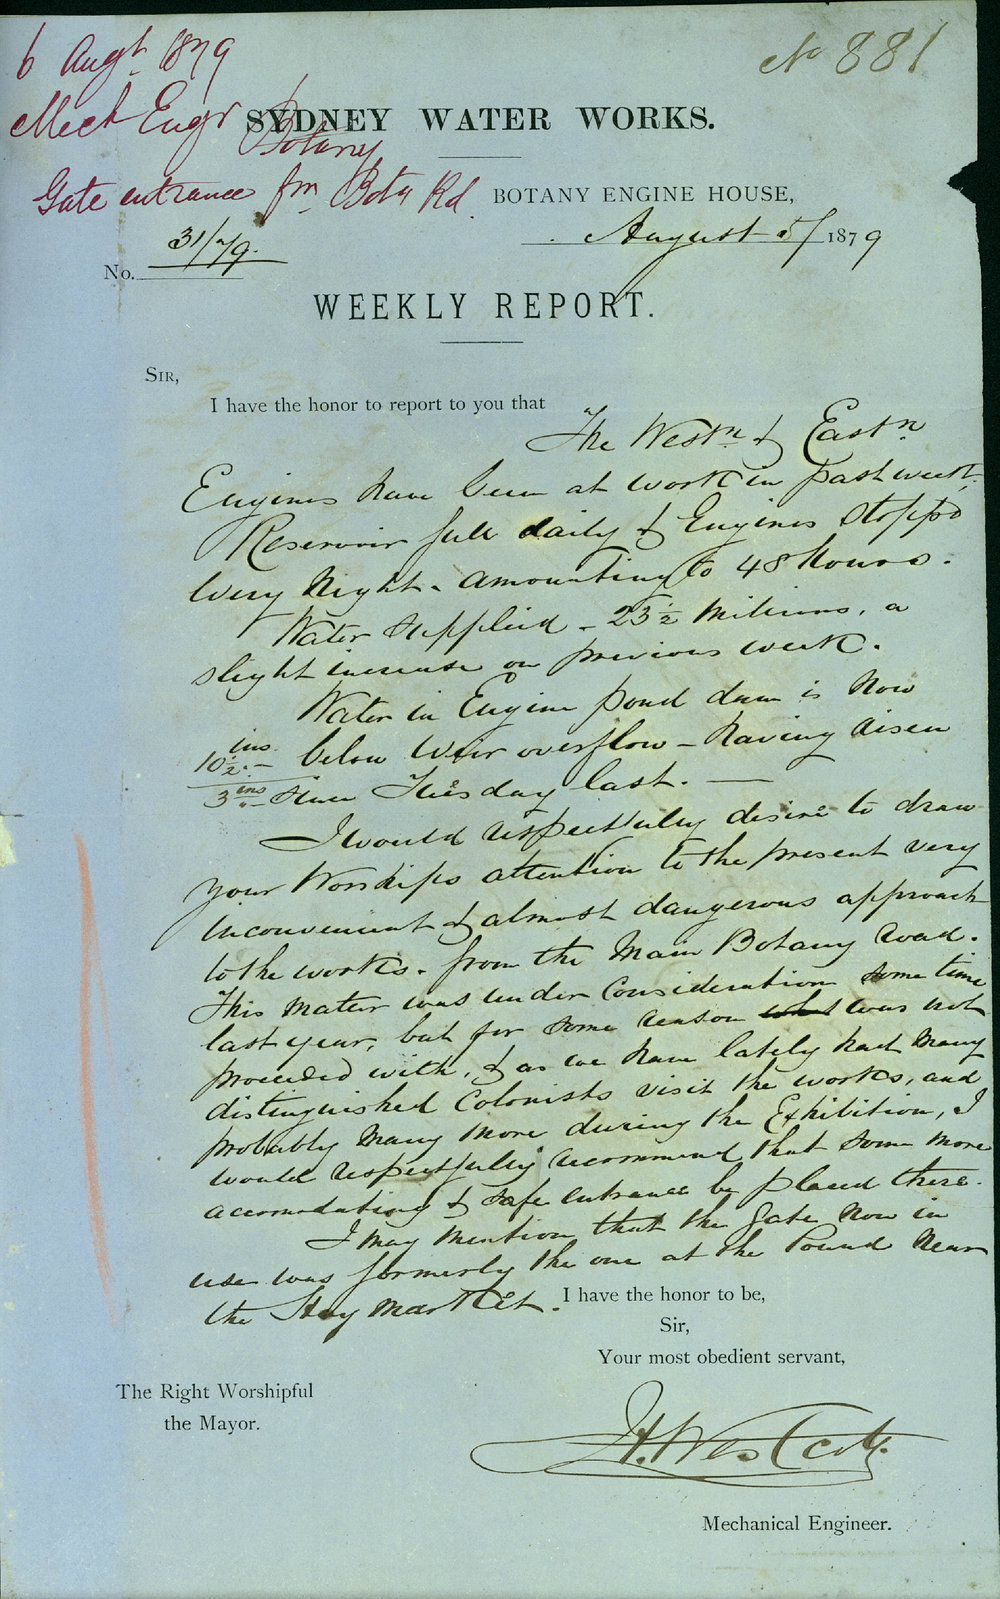 6 Augt. 1879
No 881
Mect Engr Botany
SYDNEY WATER WORKS.
Gate entrance fm Bota Rd.
BOTANY ENGINE HOUSE,
August 5/ 1879
No. 31/79.
WEEKLY REPORT.
SIR,
I have the honor to report to you that
The Westn & Eastn
Engines have been at work in past week,
Reservoir full daily & Engines stopp'd
every night - amounting to 48 hours.
Water supplied - 23½ millions, a
slight increase on previous week.
Water in Engine pond dam is now
10½ ins. below weir overflow - having risen
3 ins since Tuesday last. —
I would respectfully desire to draw
your Worships attention to the present very
inconvenient & almost dangerous approach
to the works - from the Main Botany road.
This mater was under consideration some time
last year, but for some reason was not
proceeded with, & as we have lately had many
distinguished Colonists visit the works, and
probably many more during the Exhibition, I
would respectfully recommend that some more
accomodating & safe entrance be placed there.
I may mention that the gate now in
use was formerly the one at the Pound near
the Hay market.
I have the honor to be,
Sir,
Your most obedient servant,
The Right Worshipful
the Mayor.
H. Westcott.
Mechanical Engineer.